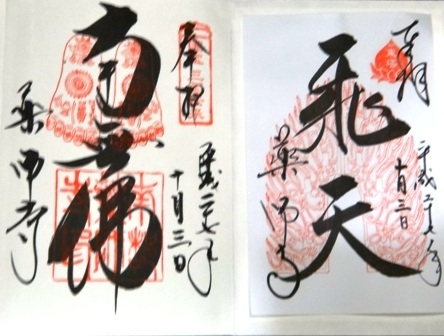 奉拝
平成二七年
十月三日
飛天
薬師寺
奉拝
平成二七年
十月三日
南無佛
薬師寺